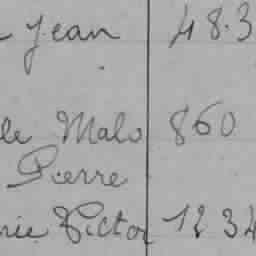 Jean 48.3
le Malo 860
Pierre
rie Victor 1234